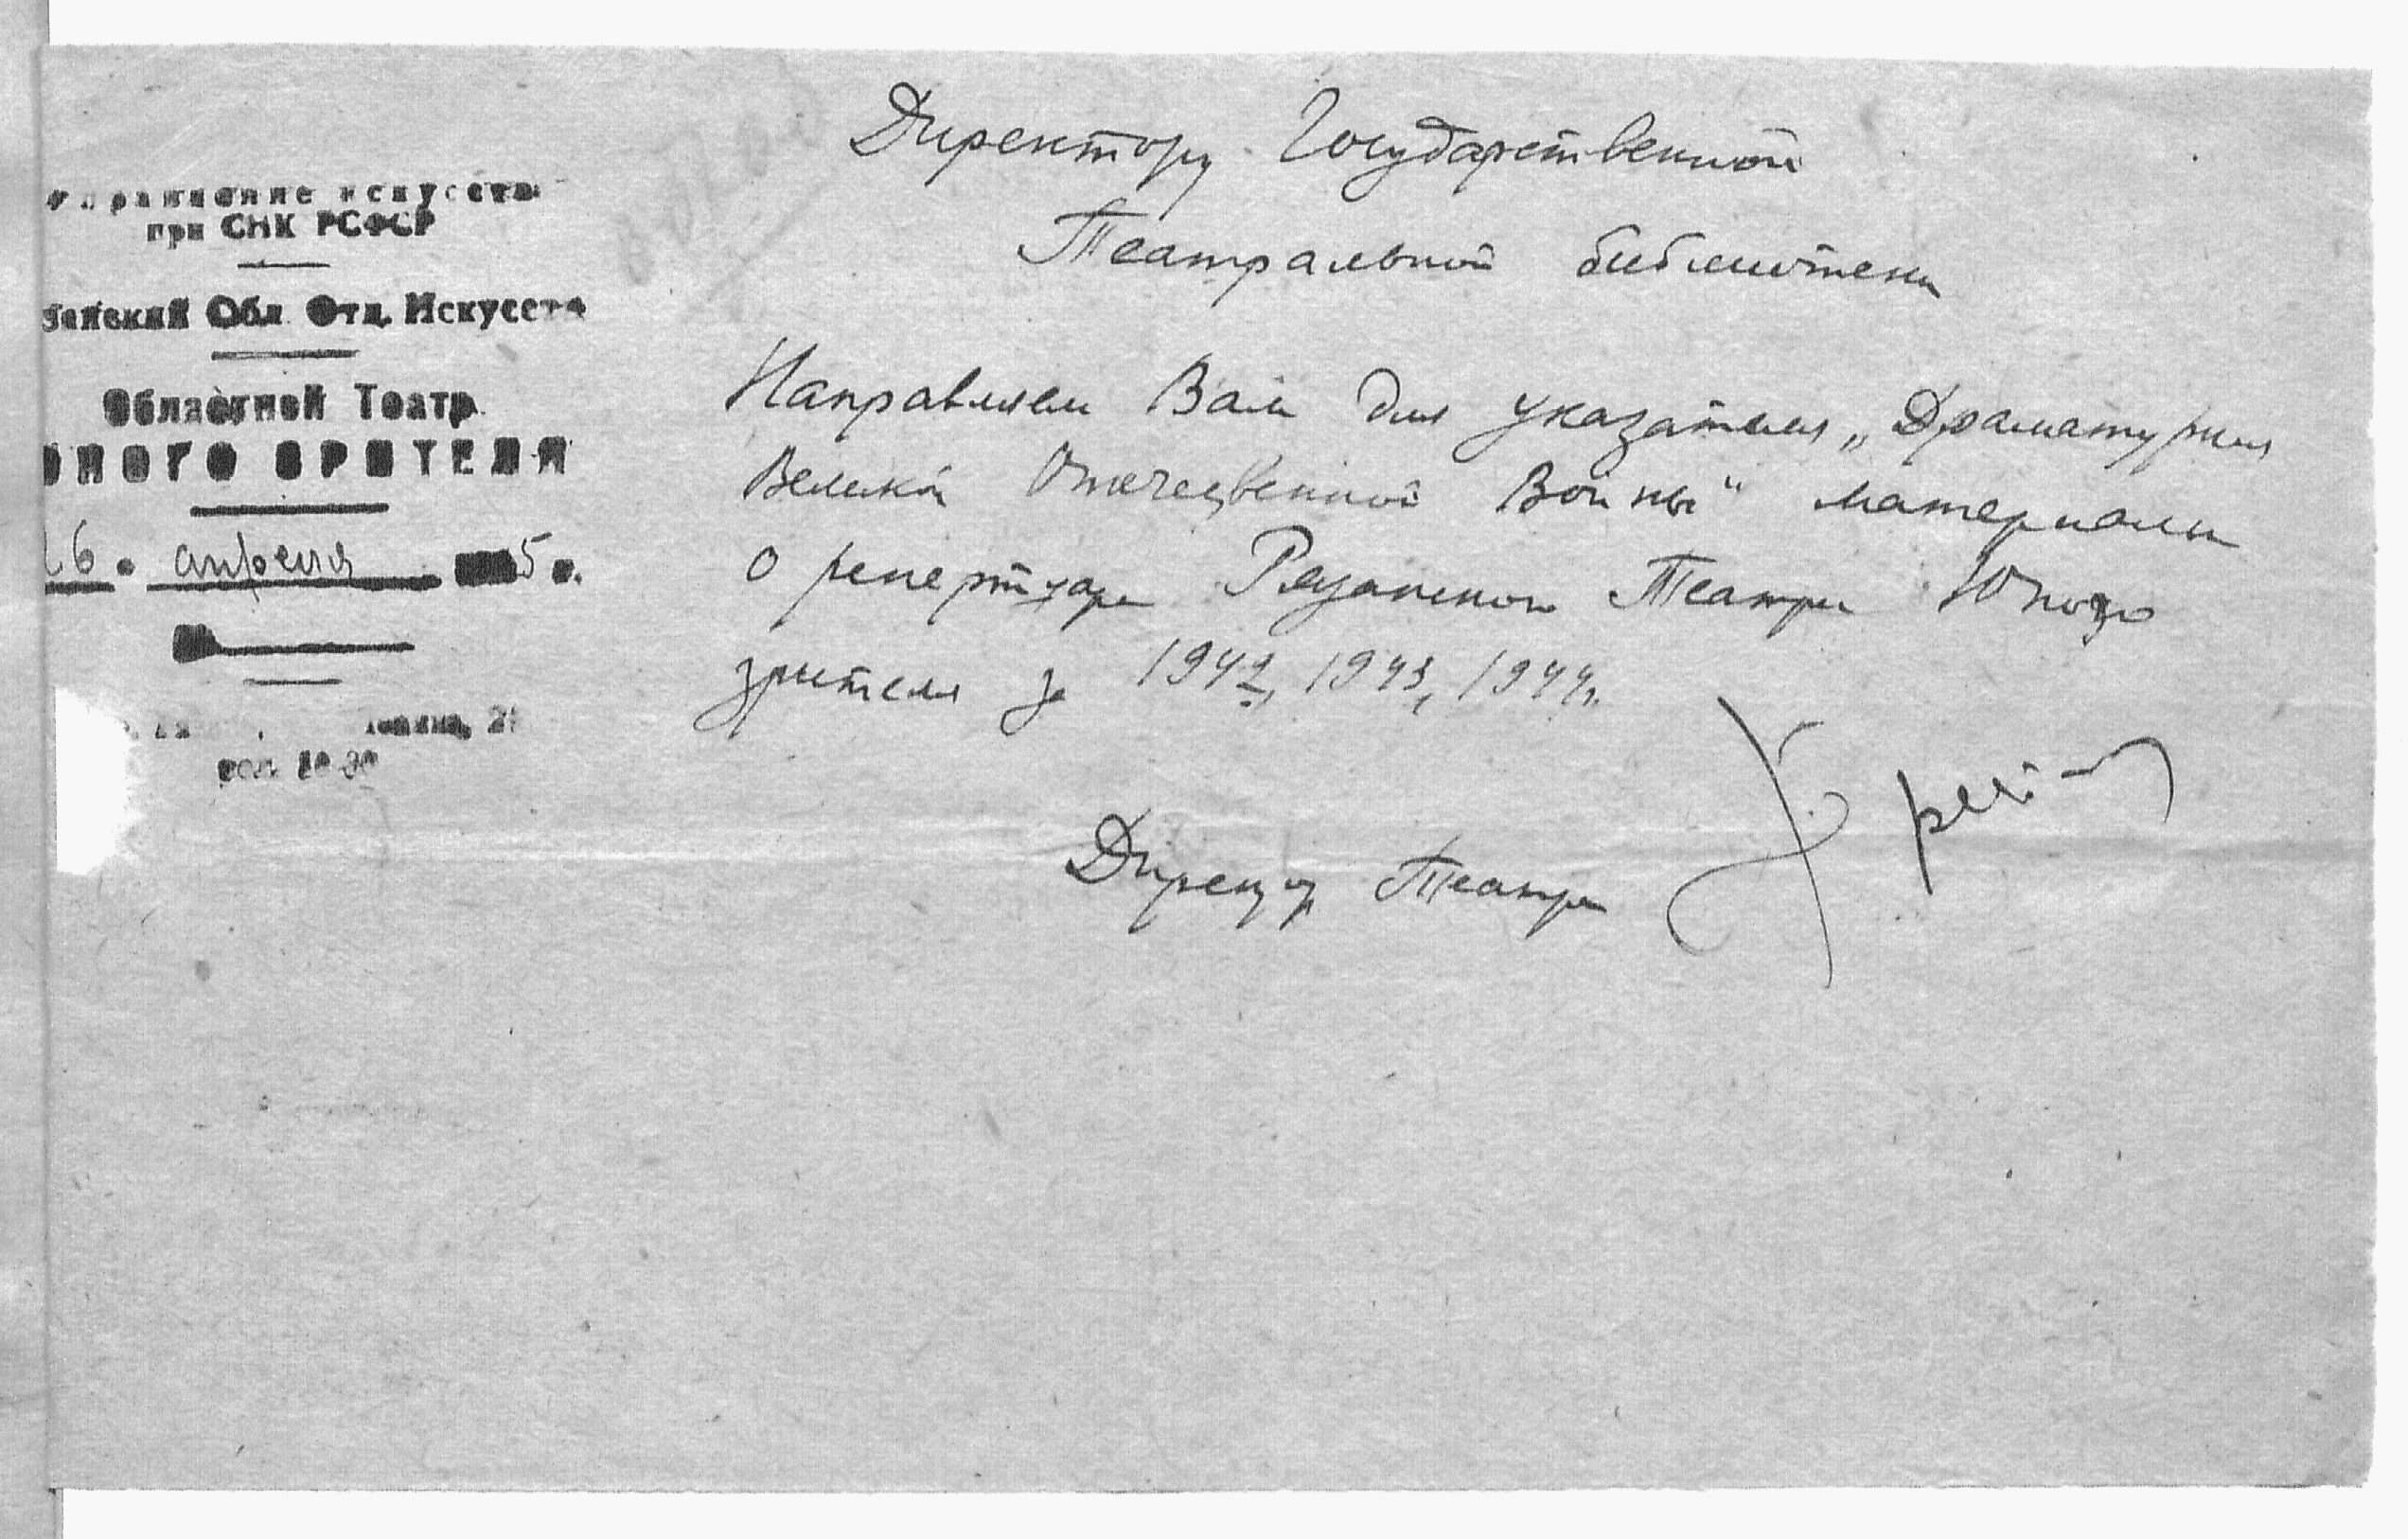 Управление искусств
при СНК РСФСР
занский Обл. Отд. Искусств
Областной Театр
ЮНОГО ЗРИТЕЛЯ
26. апреля 5 г.
Директору Государственной
Театральной библиотеки
Направляем Вам для указателя „Драматургия
Великой Отечественной Войны" материалы
о репертуаре Рязанского Театра Юного
зрителя за 1942, 1943, 1944 г.
Директор Театра